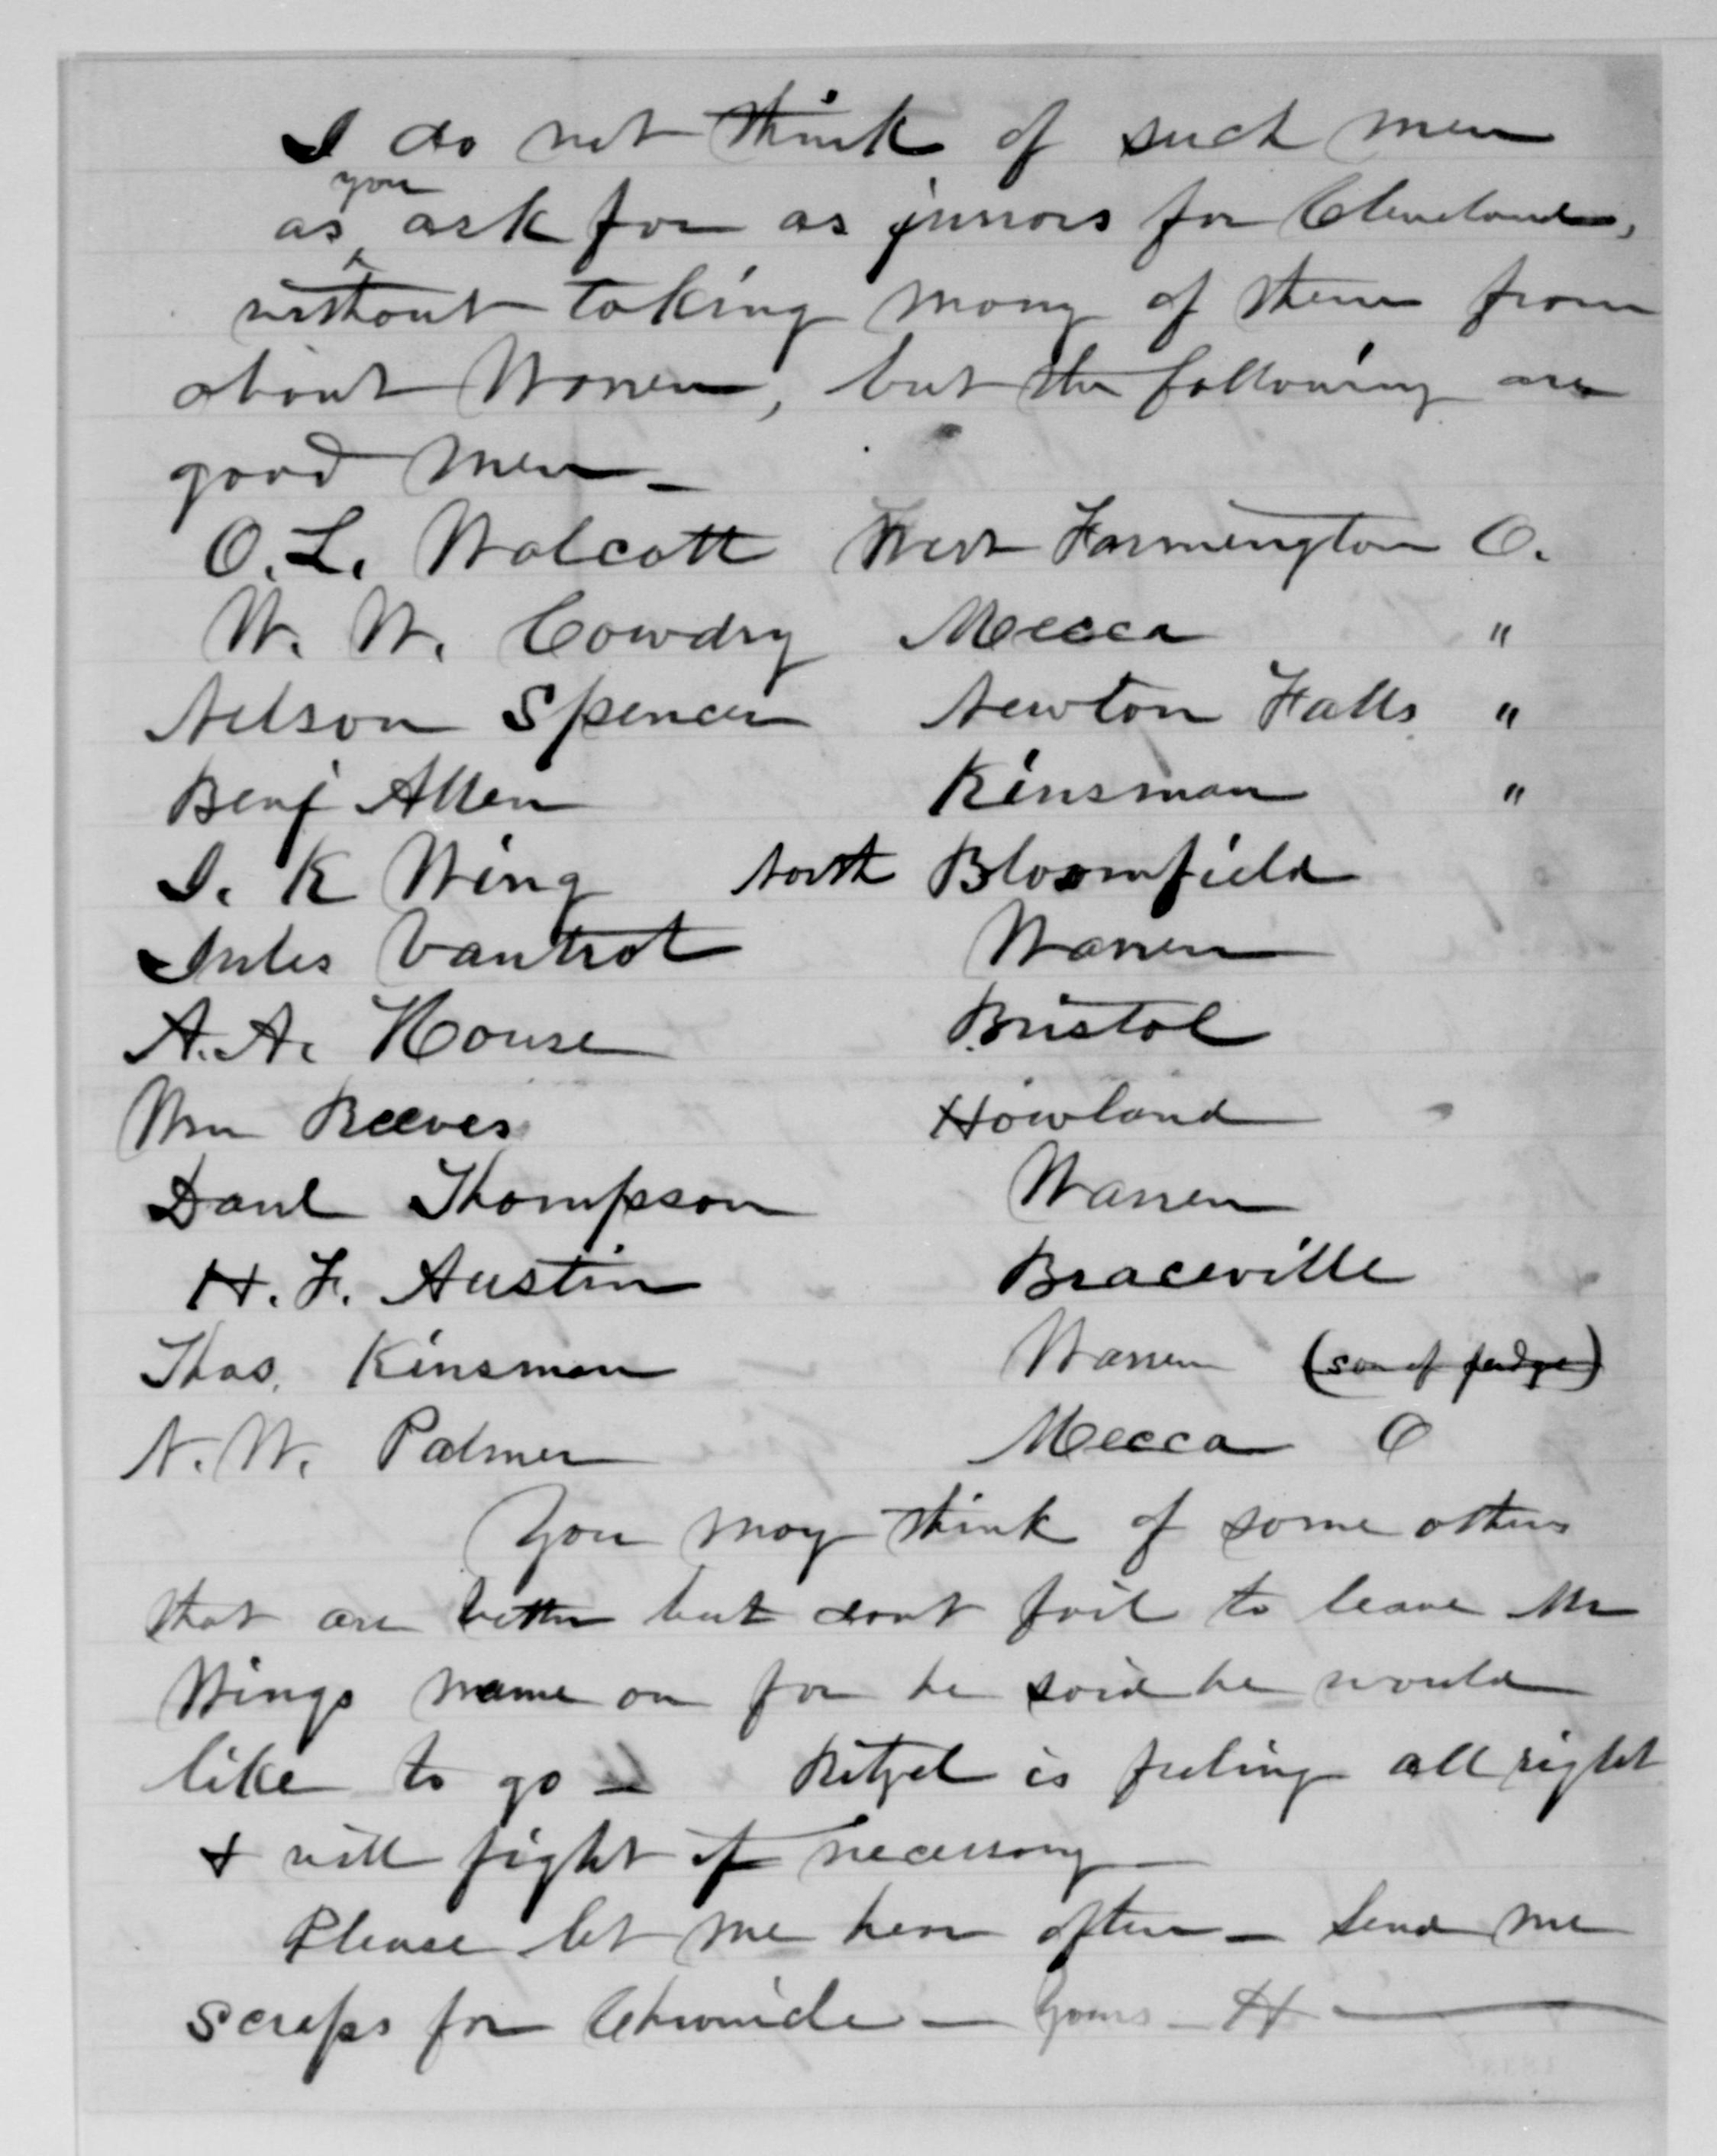 I do not think of such men
as you ask for as jurors for Cleveland,
without taking many of them from
about Warren, but the following are
good men_
O. L. Wolcott West Farmington O.
W. W. Cowdry Mecca "
Nelson Spencer Newton Falls "
Benj Allen Kinsman "
I. K Wing North Bloomfield
Jules Vautrot Warren
A. A. House Bristol
Wm Reeves Howland
Danl Thompson Warren
H. F. Austin Braceville
Thos. Kinsman Warren (son of judge)
N. W. Palmer Mecca O
You may think of some others
that are better but dont fail to leave Mr
Wings name on for he said he would
like to go _ Ritzel is feeling all right
& will fight if necessary
Please let me hear often _ Send me
scraps for Chronicle _ Yours _ H